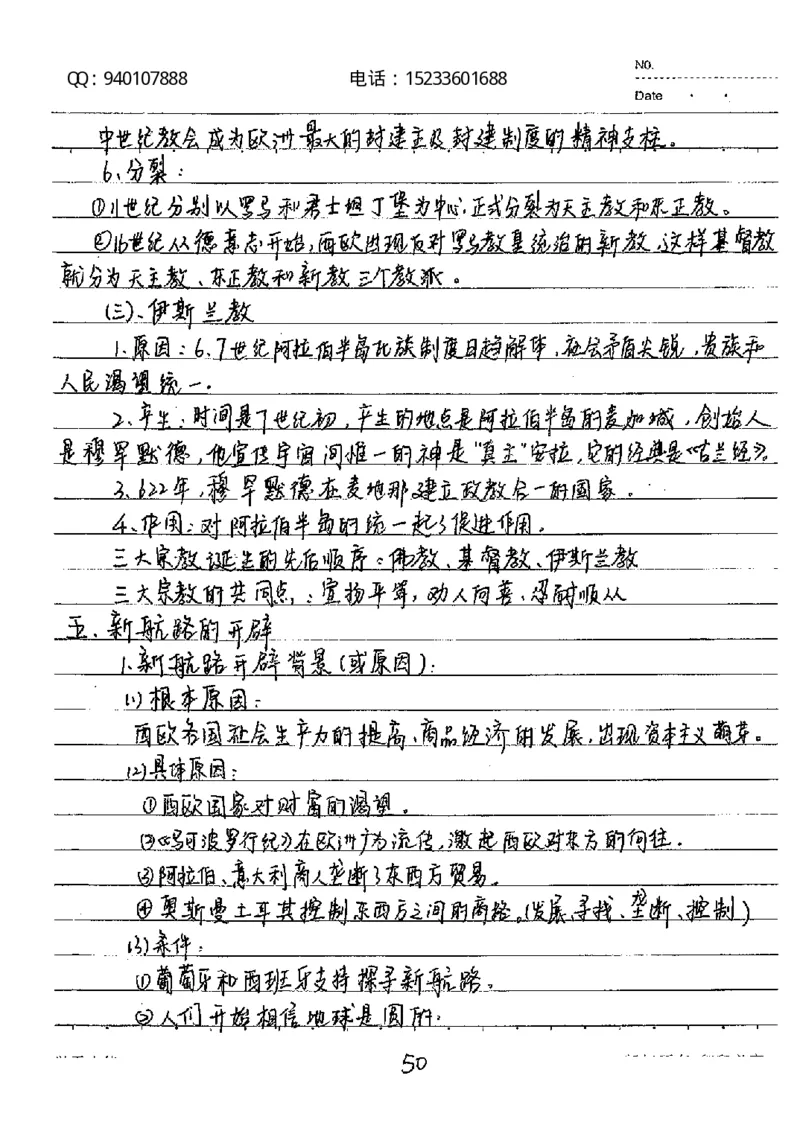 NO.
QQ：940107888 电话：15233601688
Date
中世纪教会成为欧洲最大的封建主及封建制度的精神支柱。
6、分裂：
①11世纪分别以罗马和君士坦丁堡为中心，正式分裂为天主教和东正教。
②16世纪从德意志开始，西欧出现反对罗马教皇统治的新教，这样基督教
就分为天主教、东正教和新教三个教派。
(三)、伊斯兰教
1、原因：6、7世纪阿拉伯半岛氏族制度日趋解体，社会矛盾尖锐，贵族和
人民渴望统一。
2、产生：时间是7世纪初，产生的地点是阿拉伯半岛的麦加城，创始人
是穆罕默德，他宣传宇宙间惟一的神是“真主”安拉，它的经典是《古兰经》。
3、622年，穆罕默德在麦地那建立政教合一的国家。
4、作用：对阿拉伯半岛的统一起了促进作用。
三大宗教诞生的先后顺序：佛教、基督教、伊斯兰教
三大宗教的共同点：宣扬平等，劝人向善、忍耐顺从
五、新航路的开辟
1、新航路开辟背景(或原因)：
(1)根本原因：
西欧各国社会生产力的提高、商品经济的发展，出现资本主义萌芽。
(2)具体原因：
①西欧国家对财富的渴望。
②《马可波罗行纪》在欧洲广为流传，激起西欧对东方的向往。
③阿拉伯、意大利商人垄断了东西方贸易。
④奥斯曼土耳其控制东西方之间的商路。(发展、寻找、垄断、控制)
(3)条件：
①葡萄牙和西班牙支持探寻新航路。
②人们开始相信地球是圆的；
50